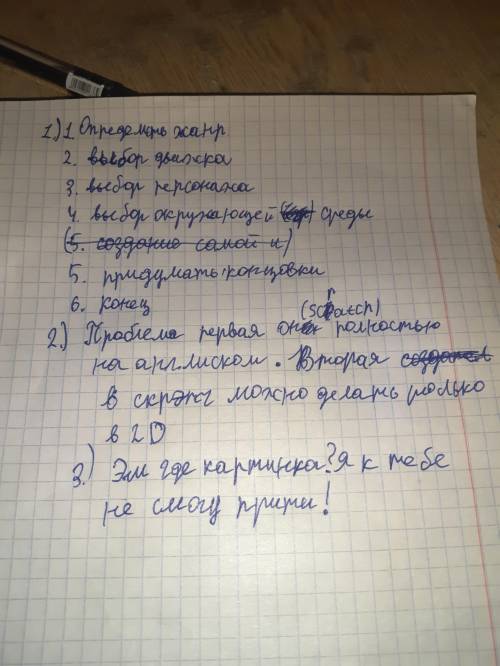 1) 1. Определить жанр
2. выбор движка
3. выбор персонажа
4. выбор окружающей среды
(5. создание самой и)
5. придумать концовки
6. конец
(scratch)
2.) Проблема первая он полностью
на англиском. Вторая
в скрэтч можно делать только
в 2D
3.) Эм где картинка? Я к тебе
не смогу прити!